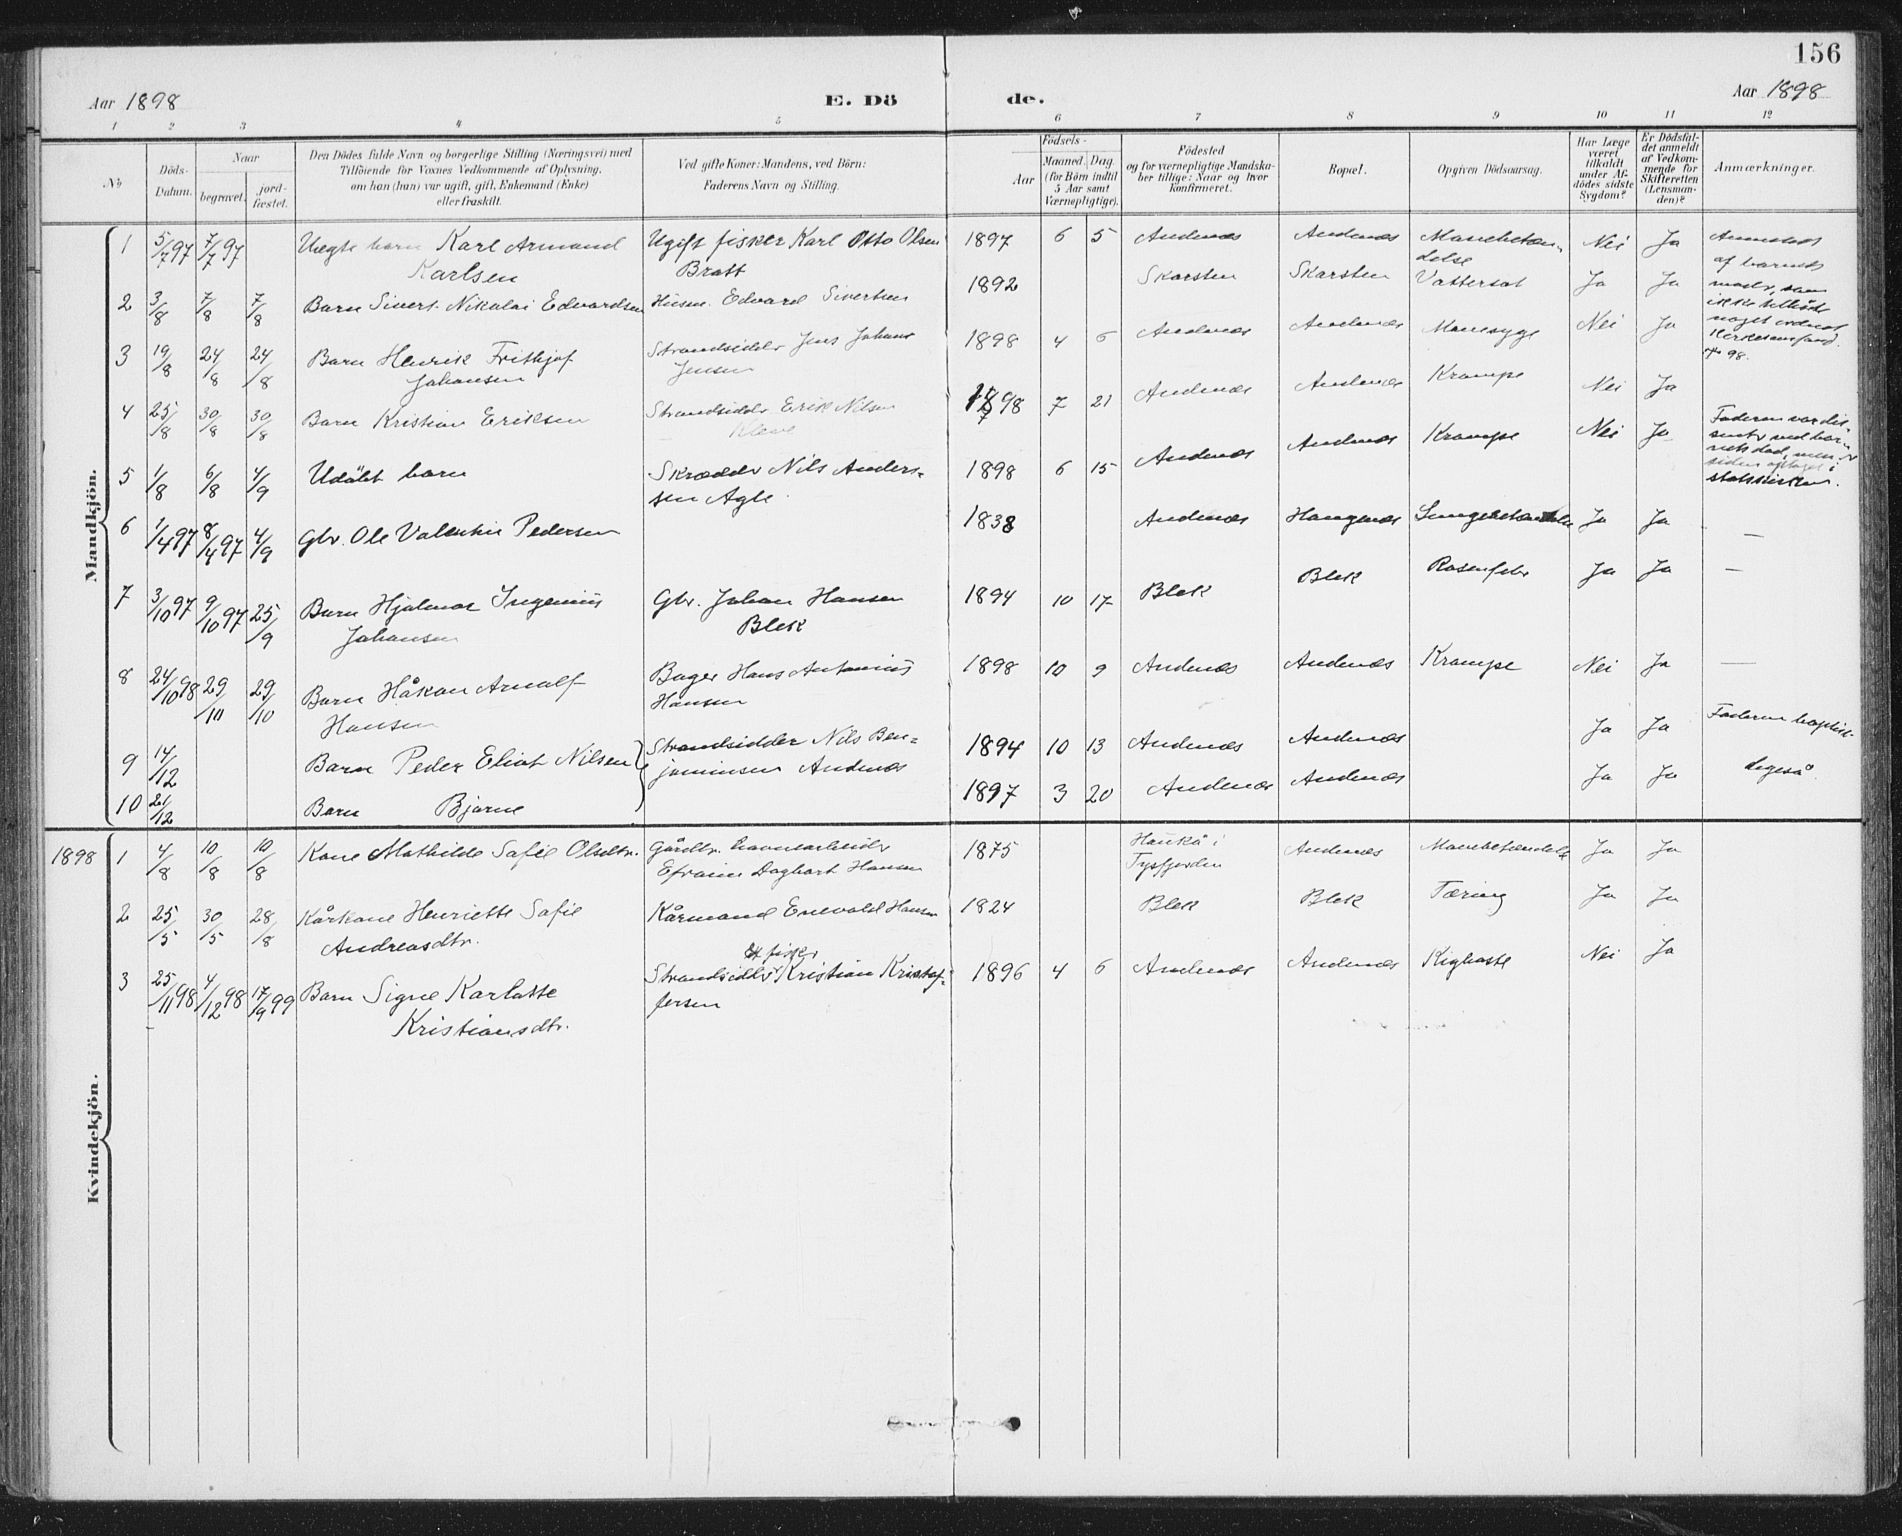 156
Aar 1898 E. Dö de. Aar 1898
1 2 3 4 5 6 7 8 9 10 11 12
№
Döds-Datum.
Naar
begravet.
jord-fæstet.
Den Dödes fulde Navn og borgerlige Stilling (Næringsvei) med
Tilföiende for Voxnes Vedkommende af Oplysning,
om han (hun) var ugift, gift, Enkemand (Enke)
eller fraskilt.
Ved gifte Koner: Mandens, ved Börn:
Faderens Navn og Stilling.
Födsels-
Aar
Maaned. Dag.
(for Börn indtil
5 Aar samt
Værnepligtige).
Födested
og for værnepligtige Mandska-
ber tillige: Naar og hvor
konfirmeret.
Bopæl.
Opgiven Dödsaarsag.
Har Læge
været
tilkaldt
under Af-
dödes sidste
Sygdom?
Er Dödsfal-
det anmeldt
af Vedkom-
mende for
Skifteretten
(Lensman-
den)?
Anmærkninger.
Mandkjön.
1 5/7 97 7/7 97 Uægte barn Karl Armand Karlsen Ugift fisker Karl Otto Olsen Bratt 1897 6 5 Andenæs Andenæs Mavebetæn-delse Nei Ja Anmeldt af barnets moder, som ikke
2 3/8 7/8 7/8 Barn Sivert Nikolai Edvardsen Husm. Edvard Sivertsen 1892 Skarsten Skarsten Vattersot Ja Ja
3 19/8 24/8 24/8 Barn Henrik Frithjof Johansen Strandsidder Jens Johan Jensen 1898 4 6 Andenæs Andenæs Mavesyge Nei Ja
4 25/8 30/8 30/8 Barn Kristian Eriksen Strandsidder Erik Nilsen Kleve 1898 7 21 Andenæs Andenæs Krampe Nei Ja
5 1/8 6/8 4/9 Udöbt barn Skrædder Nils Anders-sen Agle. 1898 6 15 Andenæs Andenæs Krampe Nei Ja Faderen var dis-senter ved bar-nets död, men er siden optaget i statskirken.
6 1/4 97 8/4 97 4/9 Gbr. Ole Valentin Pedersen 1838 Andenæs Haugnæs Lungebetændelse Ja Ja —
7 3/10 97 9/10 97 25/9 Barn Hjalmar Ingenius Johansen Gbr. Johan Hansen Blek 1894 10 17 Blek Blek Rosenfeber Ja Ja —
8 24/10 98 29/10 29/10 Barn Håkon Arnalf Hansen Bager Hans Antonius Hansen 1898 10 9 Andenæs Andenæs Krampe Nei Ja —
9 14/12 Barn Peder Eliot Nilsen Strandsidder Nils Ben-jaminsen Andenæs 1894 10 13 Andenæs Andenæs Ja Ja Faderen baptist
10 21/12 Barn Bjarne 1897 3 20 Andenæs Andenæs Ja Ja ligeså.
Kvindekjön.
1898 1 4/8 10/8 10/8 Kone Mathilde Sofie Olsdtr. Gårdbr. havnearbeider Efraim Dagbart Hansen 1875 Haukå i Tysfjorden Andenæs Mavebetændelse Ja Ja
2 25/5 30/5 28/8 Kårkone Henriette Sofie Andreasdtr. Kårmand Enevold Hansen 1824 Blek Blek Tæring Ja Ja
3 25/11 98 4/12 98 17/9 99 Barn Signe Karlotte Kristiansdtr. Strandsidder & fisker Kristian Kristof-fersen 1896 4 6 Andenæs Andenæs Kighoste Nei Ja